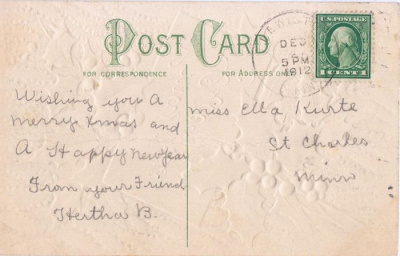 POST CARD
FOR CORRESPONDENCE
FOR ADDRESS ONLY
DEC
5 PM
1912
U.S. POSTAGE
1 CENT 1
Wishing you A
merry Xmas and
A Happy new year
From your Friend
Hertha B.
miss Ella Kurte
St Charles
Minn